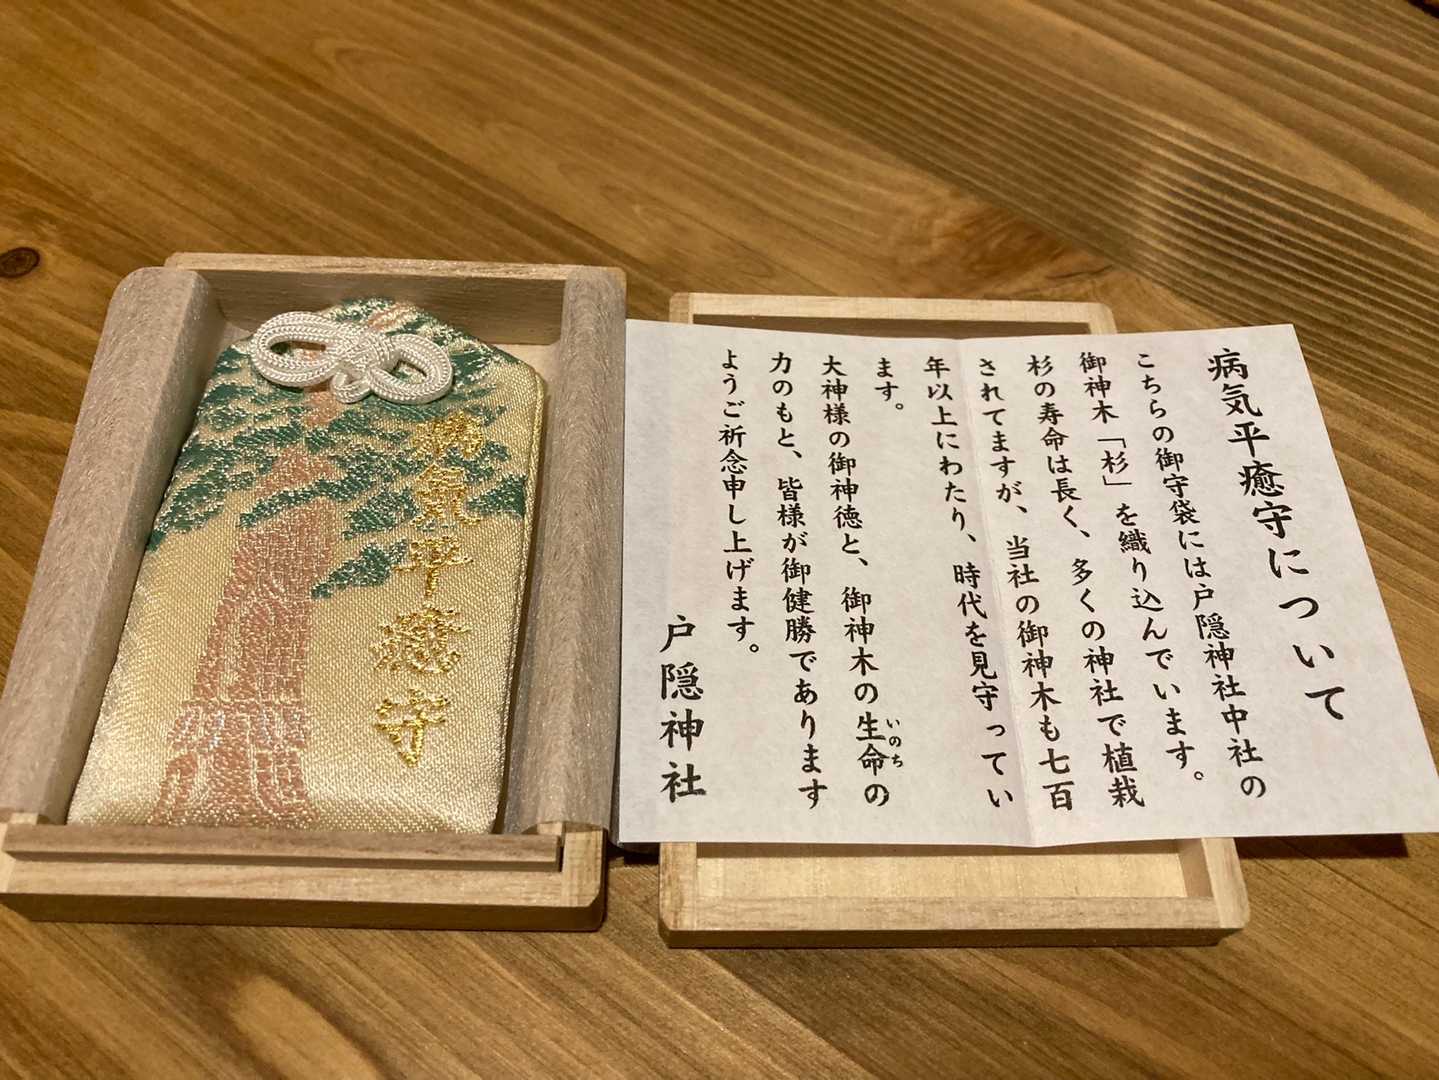 病気平癒守
病気平癒守について
こちらの御守袋には戸隠神社中社の
御神木「杉」を織り込んでいます。
杉の寿命は長く、多くの神社で植栽
されてますが、当社の御神木も七百
年以上にわたり、時代を見守ってい
ます。
大神様の御神徳と、御神木の生命の
いのち
力のもと、皆様が御健勝であります
ようご祈念申し上げます。
戸隠神社